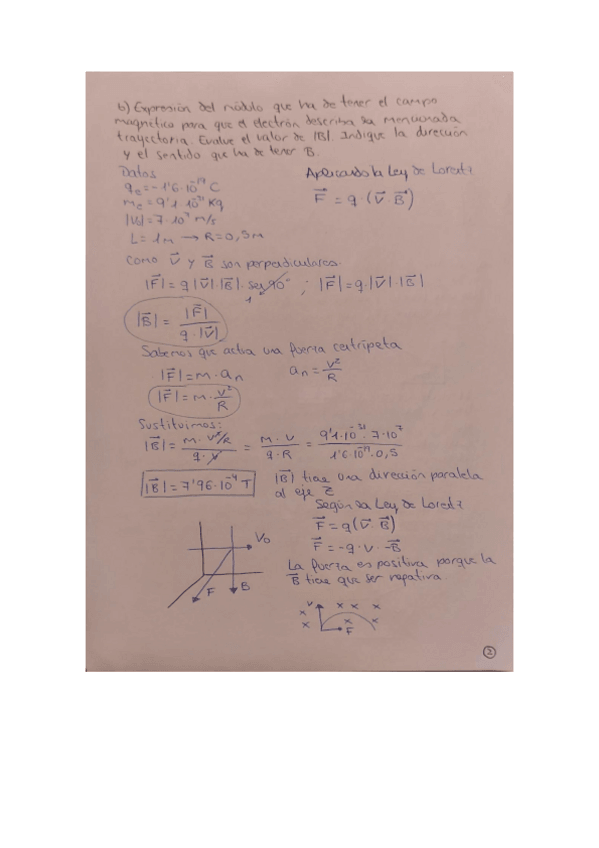 b) Expresión del módulo que ha de tener el campo
magnético para que el electrón describa la mencionada
trayectoria. Evalue el valor de |B|. Indique la dirección
y el sentido que ha de tener B.
Datos
Aplicando la Ley de Lorentz
qe = -1'6·10⁻¹⁹ C
F⃗ = q·(V⃗·B⃗)
me = 9'1·10⁻³¹ Kg
|V0| = 7·10⁷ m/s
L = 1m → R = 0,5m
Como V⃗ y B⃗ son perpendiculares.
|F⃗| = q|V⃗|·|B⃗|·sen90° ; |F⃗| = q·|V⃗|·|B⃗|
1
|B⃗| = |F⃗| / q·|V⃗|
Sabemos que actúa una fuerza centrípeta
|F⃗| = m·an
an = V²/R
|F⃗| = m·V²/R
Sustituimos:
|B⃗| = m·V²/R / q·V = m·V / q·R = 9'1·10⁻³¹·7·10⁷ / 1'6·10⁻¹⁹·0,5
|B⃗| = 7'96·10⁻⁴ T
|B⃗| tiene una dirección paralela
al eje Z
Según la Ley de Lorentz
F⃗ = q(V⃗·B⃗)
F⃗ = -q·V·-B⃗
La fuerza es positiva porque la
B⃗ tiene que ser negativa.
V0
F
B
V
x x x
x x x
F⃗
2